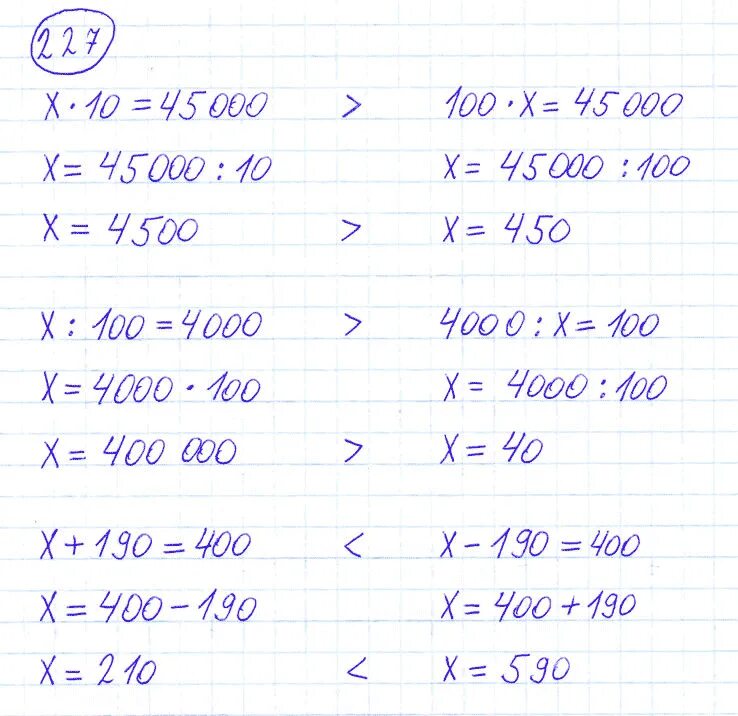 227
x · 10 = 45000 > 100 · x = 45000
x = 45000 : 10 x = 45000 : 100
x = 4500 > x = 450
x : 100 = 4000 > 4000 : x = 100
x = 4000 · 100 x = 4000 : 100
x = 400 000 > x = 40
x + 190 = 400 < x - 190 = 400
x = 400 - 190 x = 400 + 190
x = 210 < x = 590